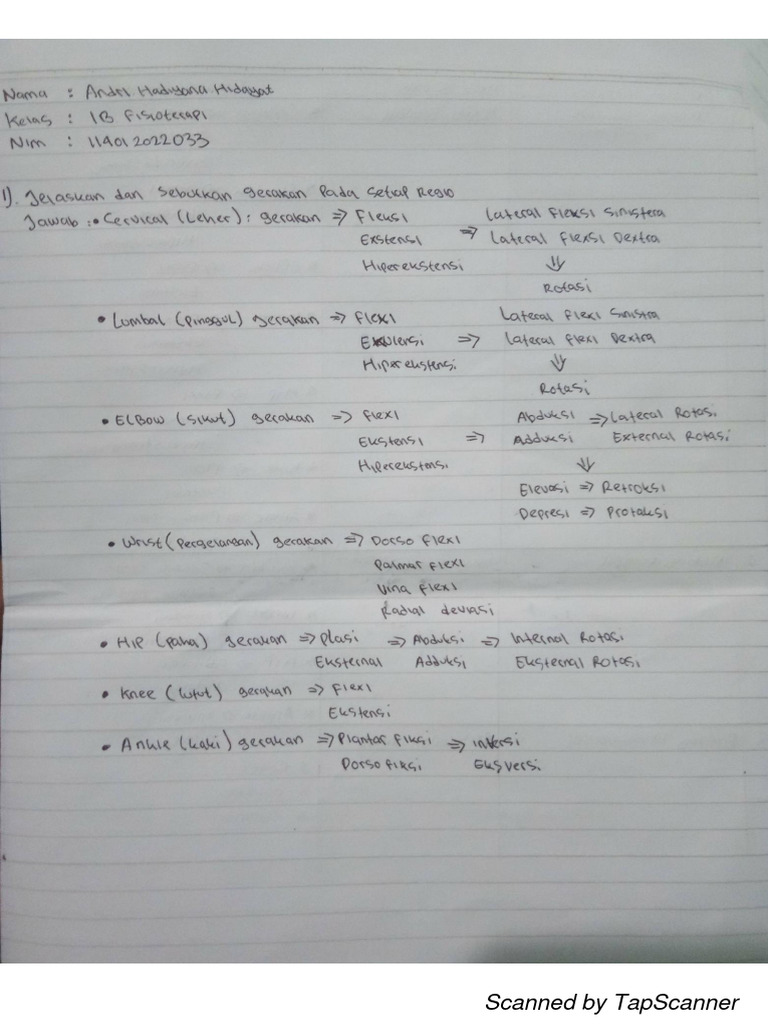 Nama : Andri Hadiyana Hidayat
Kelas : 1B Fisioterapi
Nim : 114012022033
1). Jelaskan dan Sebutkan gerakan Pada Setiap Regio
Jawab : • Cervical (Leher) : gerakan => Fleksi Lateral Fleksi Sinistera
Exstensi => Lateral Flexsi Dextra
Hiperekstensi ⇓
Rotasi
• Lumbal (Pinggul) gerakan => Flexi Lateral Flexi Sinistra
=> Lateral Flexi Dextra
Hiperekstensi ⇓
Rotasi
• Elbow (Sikut) gerakan => Flexi Abduksi => Lateral Rotasi
Ekstensi => Adduksi External Rotasi
Hiperekstensi ⇓
Elevasi => Retroksi
Depresi => Protaksi
• Wrist (Pergelangan) gerakan => Dorso Flexi
Palmar Flexi
Ulna Flexi
Radial deviasi
• Hip (Paha) gerakan => Plasi => Abduksi => Internal Rotasi
Eksternal Adduksi Eksternal Rotasi
• Knee (lutut) gerakan => Flexi
Ekstensi
• Ankle (kaki) gerakan => Plantar fiksi => inversi
Dorso fiksi Eksversi
Scanned by TapScanner